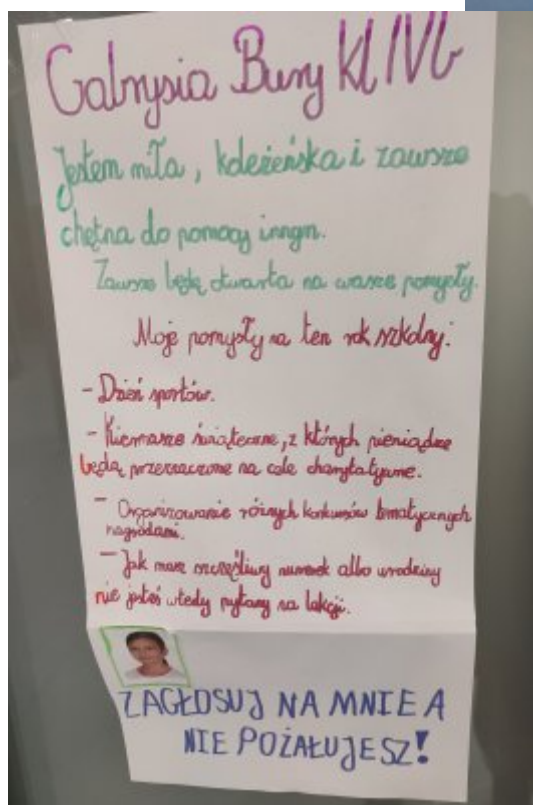 Gabrysia Bury kl IVb
Jestem miła, koleżeńska i zawsze
chętna do pomocy innym.
Zawsze będę otwarta na wasze pomysły.
Moje pomysły na ten rok szkolny:
- Dzień sportów.
- Kiermasze świąteczne, z których pieniądze
będą przeznaczone na cele charytatywne.
- Organizowanie różnych konkursów tematycznych
nagrodami.
- Jak masz szczęśliwy numerek albo urodziny
nie jesteś wtedy pytany na lekcji.
ZAGŁOSUJ NA MNIE A
NIE POŻAŁUJESZ!